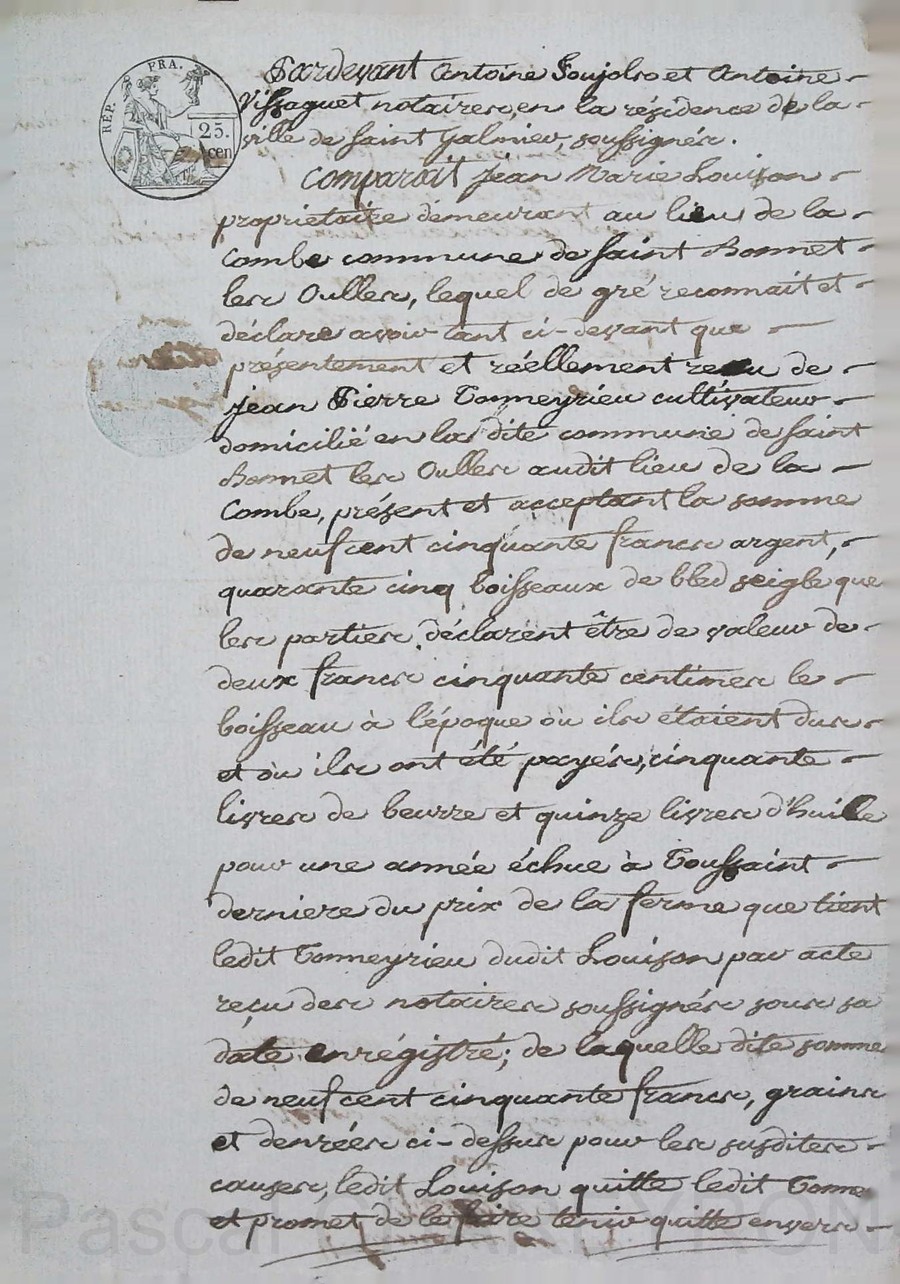 RÉP. FRA.
25.
cen
Pardevant Antoine Poujols et Antoine
Vissaguet notaires, en la résidence de la
ville de Saint Galmier, soussignés.
Comparait Jean Marie Louison
propriétaire demeurant au lieu de la
Combe commune de Saint Bonnet
les Oulles, lequel de gré reconnait et
déclare avoir tant ci-devant que
présentement et réellement reçu de
Jean Pierre Tonneyrieu cultivateur
domicilié en la dite commune de Saint
Bonnet les Oulles audit lieu de la
Combe, présent et acceptant la somme
de neuf cent cinquante francs argent,
quarante cinq boisseaux de bled seigle que
les parties déclarent être de valeur de
deux francs cinquante centimes le
boisseau à l'époque où ils étaient dus
et où ils ont été payés, cinquante
livres de beurre et quinze livres d'huile
pour une année échue à Toussaint
derniere du prix de la ferme que tient
ledit Tonneyrieu dudit Louison par acte
reçu des notaires soussignés sous sa
date enrégistré; de laquelle dite somme
de neuf cent cinquante francs, grains
et denrées ci-dessus pour les susdites
causes, ledit Louison quitte ledit Tonne
et promet de le faire tenir quitte envers
Pascal